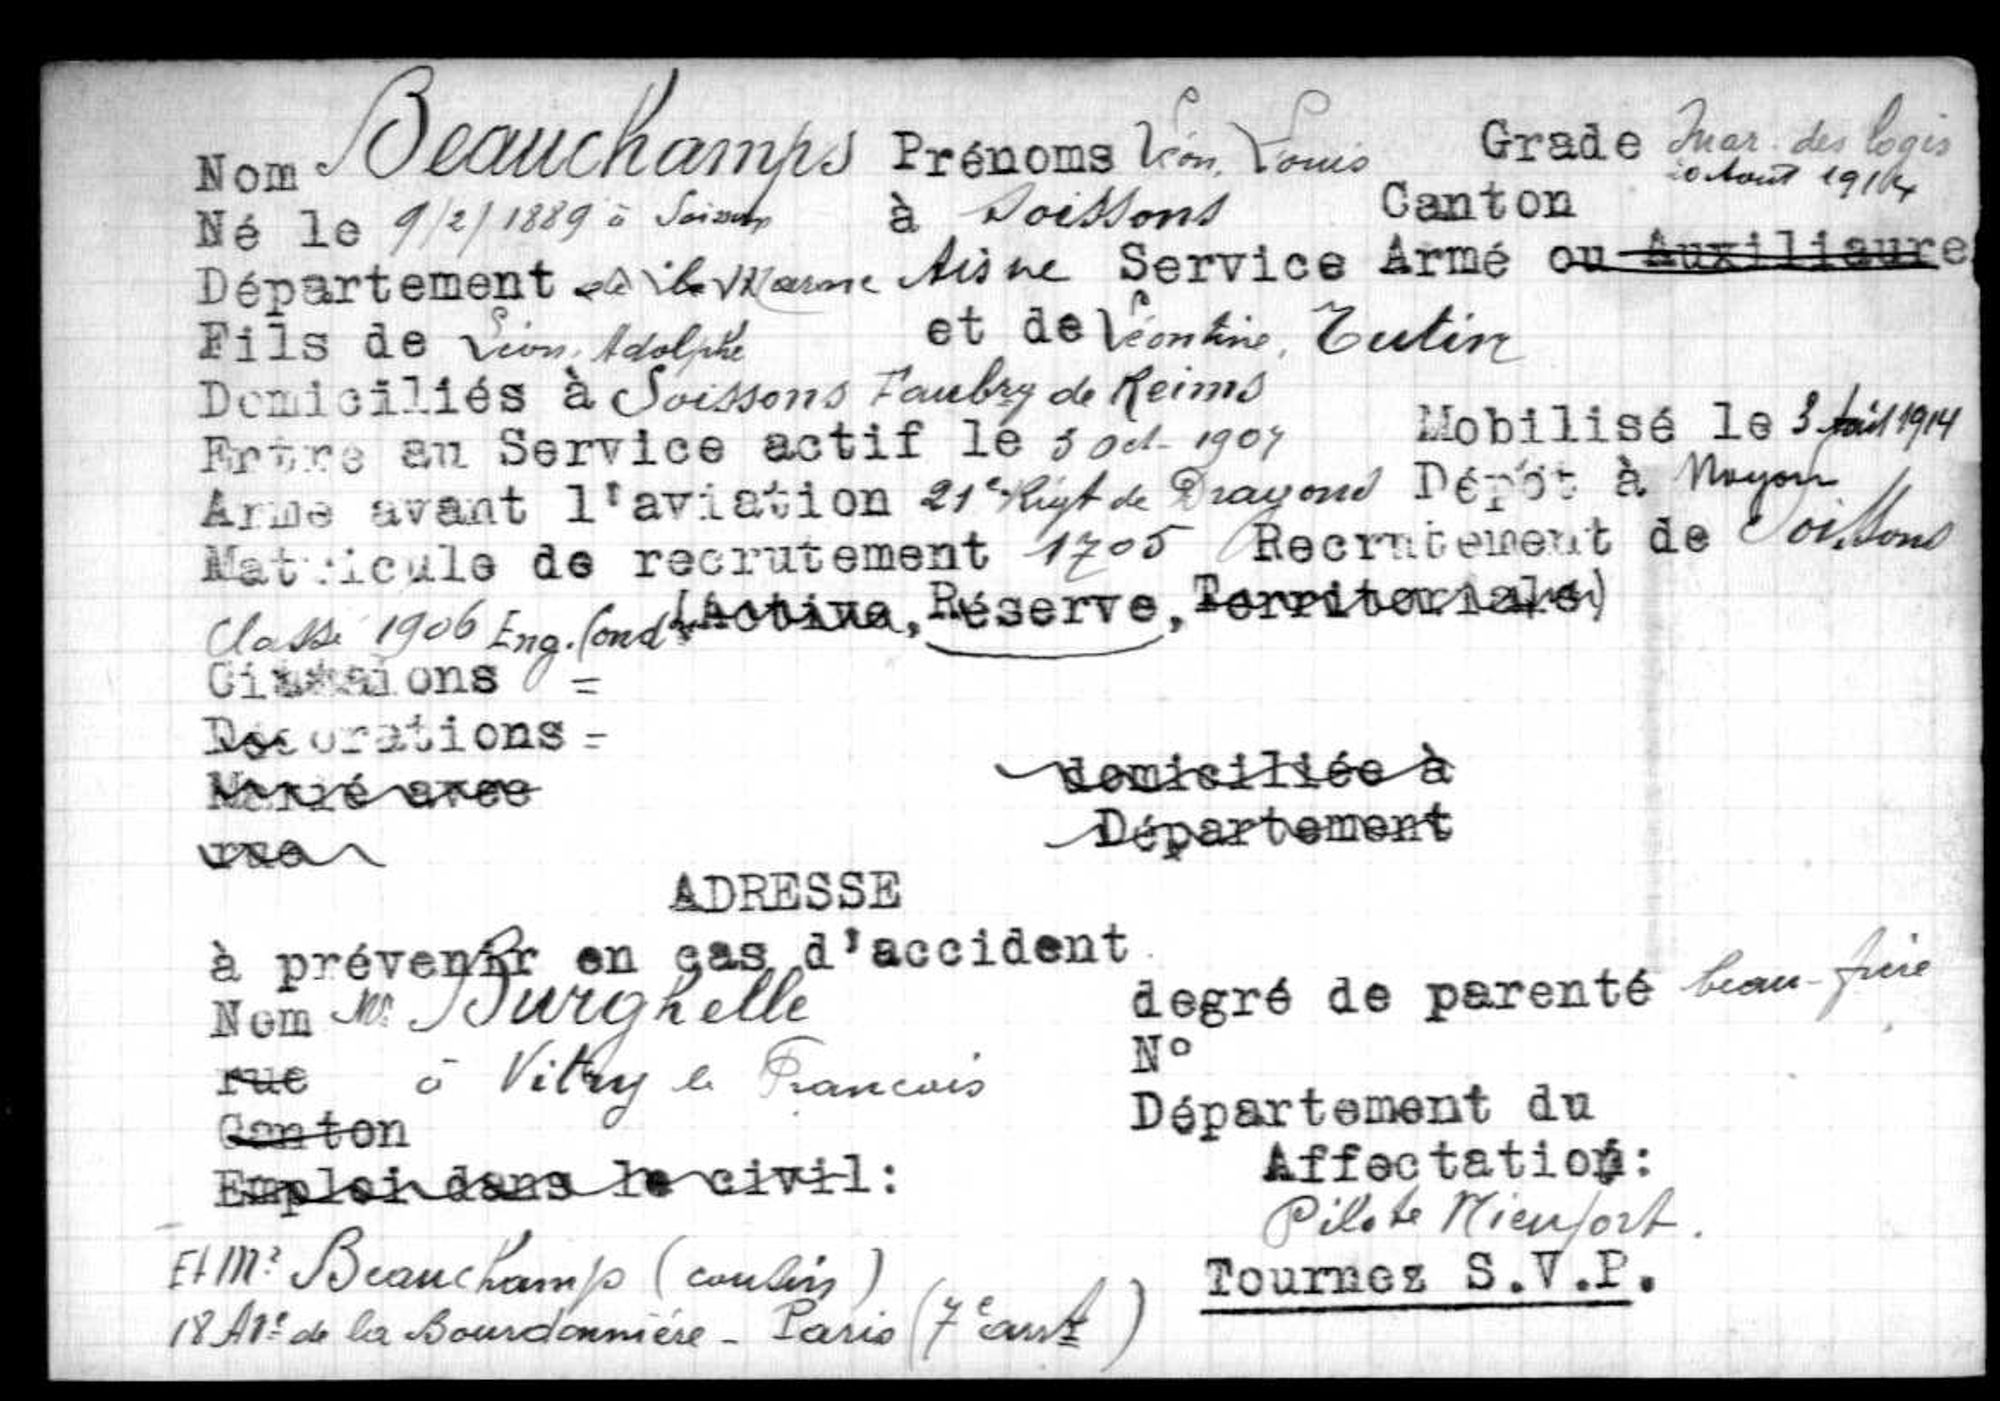 Nom Beauchamps Prénoms Léon, Louis Grade Mar. des logis
20 Aout 1914
Né le 9/2/1889 à Soissons à Soissons Canton
Département de la Marne Aisne Service Armé ou Auxiliaure
Fils de Léon, Adolphe et de Léontine, Tutin
Domiciliés à Soissons Faubrg de Reims
Entre au Service actif le 5 oct. 1907 Mobilisé le 3 Août 1914
Arme avant l'aviation 21e Rigt de Dragons Dépôt à Noyon
Matricule de recrutement 1705 Recrutement de Soissons
Classe 1906 Eng. Cond (Active, Réserve, Territoriale)
Citations =
Décorations =
Marié avec domiciliée à
rue Département
ADRESSE
à prévenir en cas d'accident
Nom Mr Burghelle degré de parenté beau-frère
N°
rue à Vitry le Francois
Canton Département du
Affectation:
Emploi dans le civil:
Pilote Nieuport.
Et Mr Beauchamp (cousin) Tournez S.V.P.
18 Ave de la Bourdonnière - Paris (7e arrt)